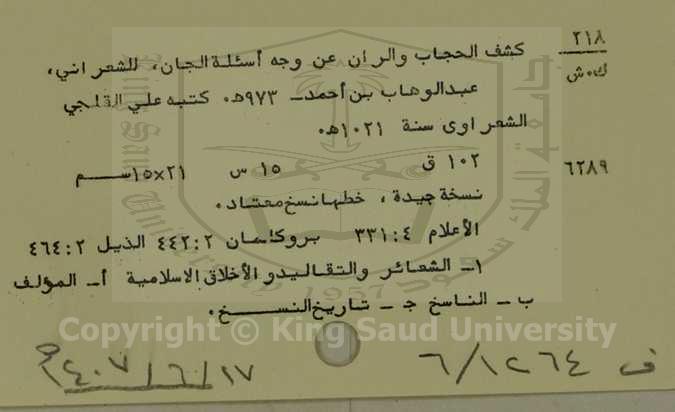 ٢١٨
ك٠ش
كشف الحجاب والران عن وجه أسئلة الجان، للشعراني،
عبدالوهاب بن أحمد ــ ٩٧٣ھ٠ كتبه علي القلجي
الشعراوى سنة ١٠٢١ھ٠
٦٢٨٩
١٠٢ ق ١٥ س ٢١×١٥ســم
نسخة جيدة، خطها نسخ معتاد٠
الأعلام ٤: ٣٣١ بروكلمان ٢: ٤٤٢ الذيل ٢: ٤٦٤
١ــ الشعائر والتقاليد و الأخلاق الاسلامية أــ المؤلف
ب ــ الناسخ جـ ــ تاريخ النســـخ٠
Copyright © King Saud University
ف ٦/١٢٦٤
١٤٠٧/٦/١٧ھ
King Saud University
1957